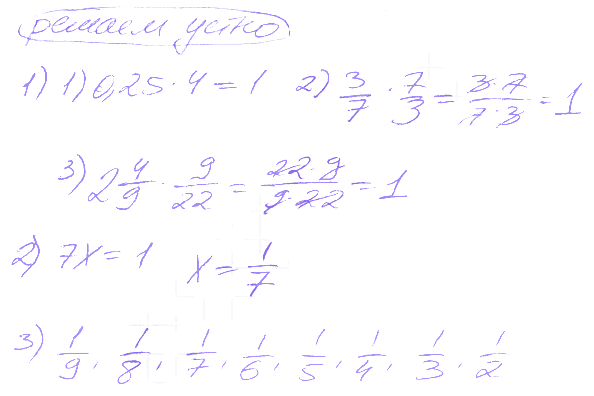 решаем устно
1) 1) 0,25 · 4 = 1 2) 3/7 · 7/3 = 3·7/7·3 = 1
3) 2 4/9 · 9/22 = 22·9/9·22 = 1
2) 7x = 1 x = 1/7
3) 1/9, 1/8, 1/7, 1/6, 1/5, 1/4, 1/3, 1/2